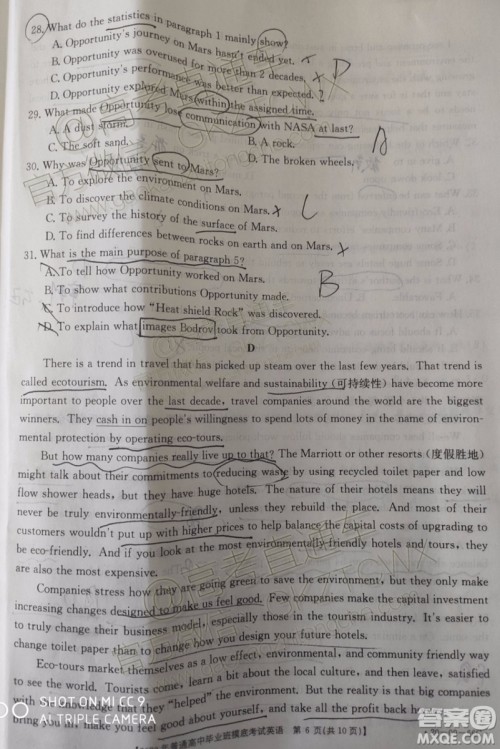 28. What do the statistics in paragraph 1 mainly show?
A. Opportunity's journey on Mars hasn't ended yet.
B. Opportunity was overused for more than 2 decades.
C. Opportunity's performance was better than expected.
D. Opportunity explored Mars within the assigned time.
D
29. What made Opportunity lose communication with NASA at last?
A. A dust storm.
B. A rock.
C. The soft sand.
D. The broken wheels.
A
30. Why was Opportunity sent to Mars?
A. To explore the environment on Mars.
B. To discover the climate conditions on Mars.
C. To survey the history of the surface of Mars.
D. To find differences between rocks on earth and on Mars.
C
31. What is the main purpose of paragraph 5?
A. To tell how Opportunity worked on Mars.
B. To show what contributions Opportunity made.
C. To introduce how "Heat shield Rock" was discovered.
D. To explain what images Bodrov took from Opportunity.
B
D
There is a trend in travel that has picked up steam over the last few years. That trend is
called ecotourism. As environmental welfare and sustainability (可持续性) have become more
important to people over the last decade, travel companies around the world are the biggest
winners. They cash in on people's willingness to spend lots of money in the name of environ-
mental protection by operating eco-tours.
But how many companies really live up to that? The Marriott or other resorts (度假胜地)
might talk about their commitments to reducing waste by using recycled toilet paper and low
flow shower heads, but they have huge hotels. The nature of their hotels means they will
never be truly environmentally-friendly, unless they rebuild the place. And most of their
customers wouldn't put up with higher prices to help balance the capital costs of upgrading to
be eco-friendly. And if you look at the most environmentally-friendly hotels and tours, they
are also the most expensive.
Companies stress how they are going green to save the environment, but they only make
increasing changes designed to make us feel good. Few companies make the capital investment
to truly change their business model, especially those in the tourism industry. It's easier to
change toilet paper than to change how you design your future hotels.
Eco-tours market themselves as a low effect, environmental, and community friendly way
to see the world. Tourists come, learn and leave. But the reality is that big companies
with knowledge that they "helped" the environment. But the reality is that big companies
bring you all make you feel good, and take all the profit back home.
普通高中毕业班摸底考试英语 第 6 页(共 10 页)
SHOT ON MI CC 9
AI TRIPLE CAMERA